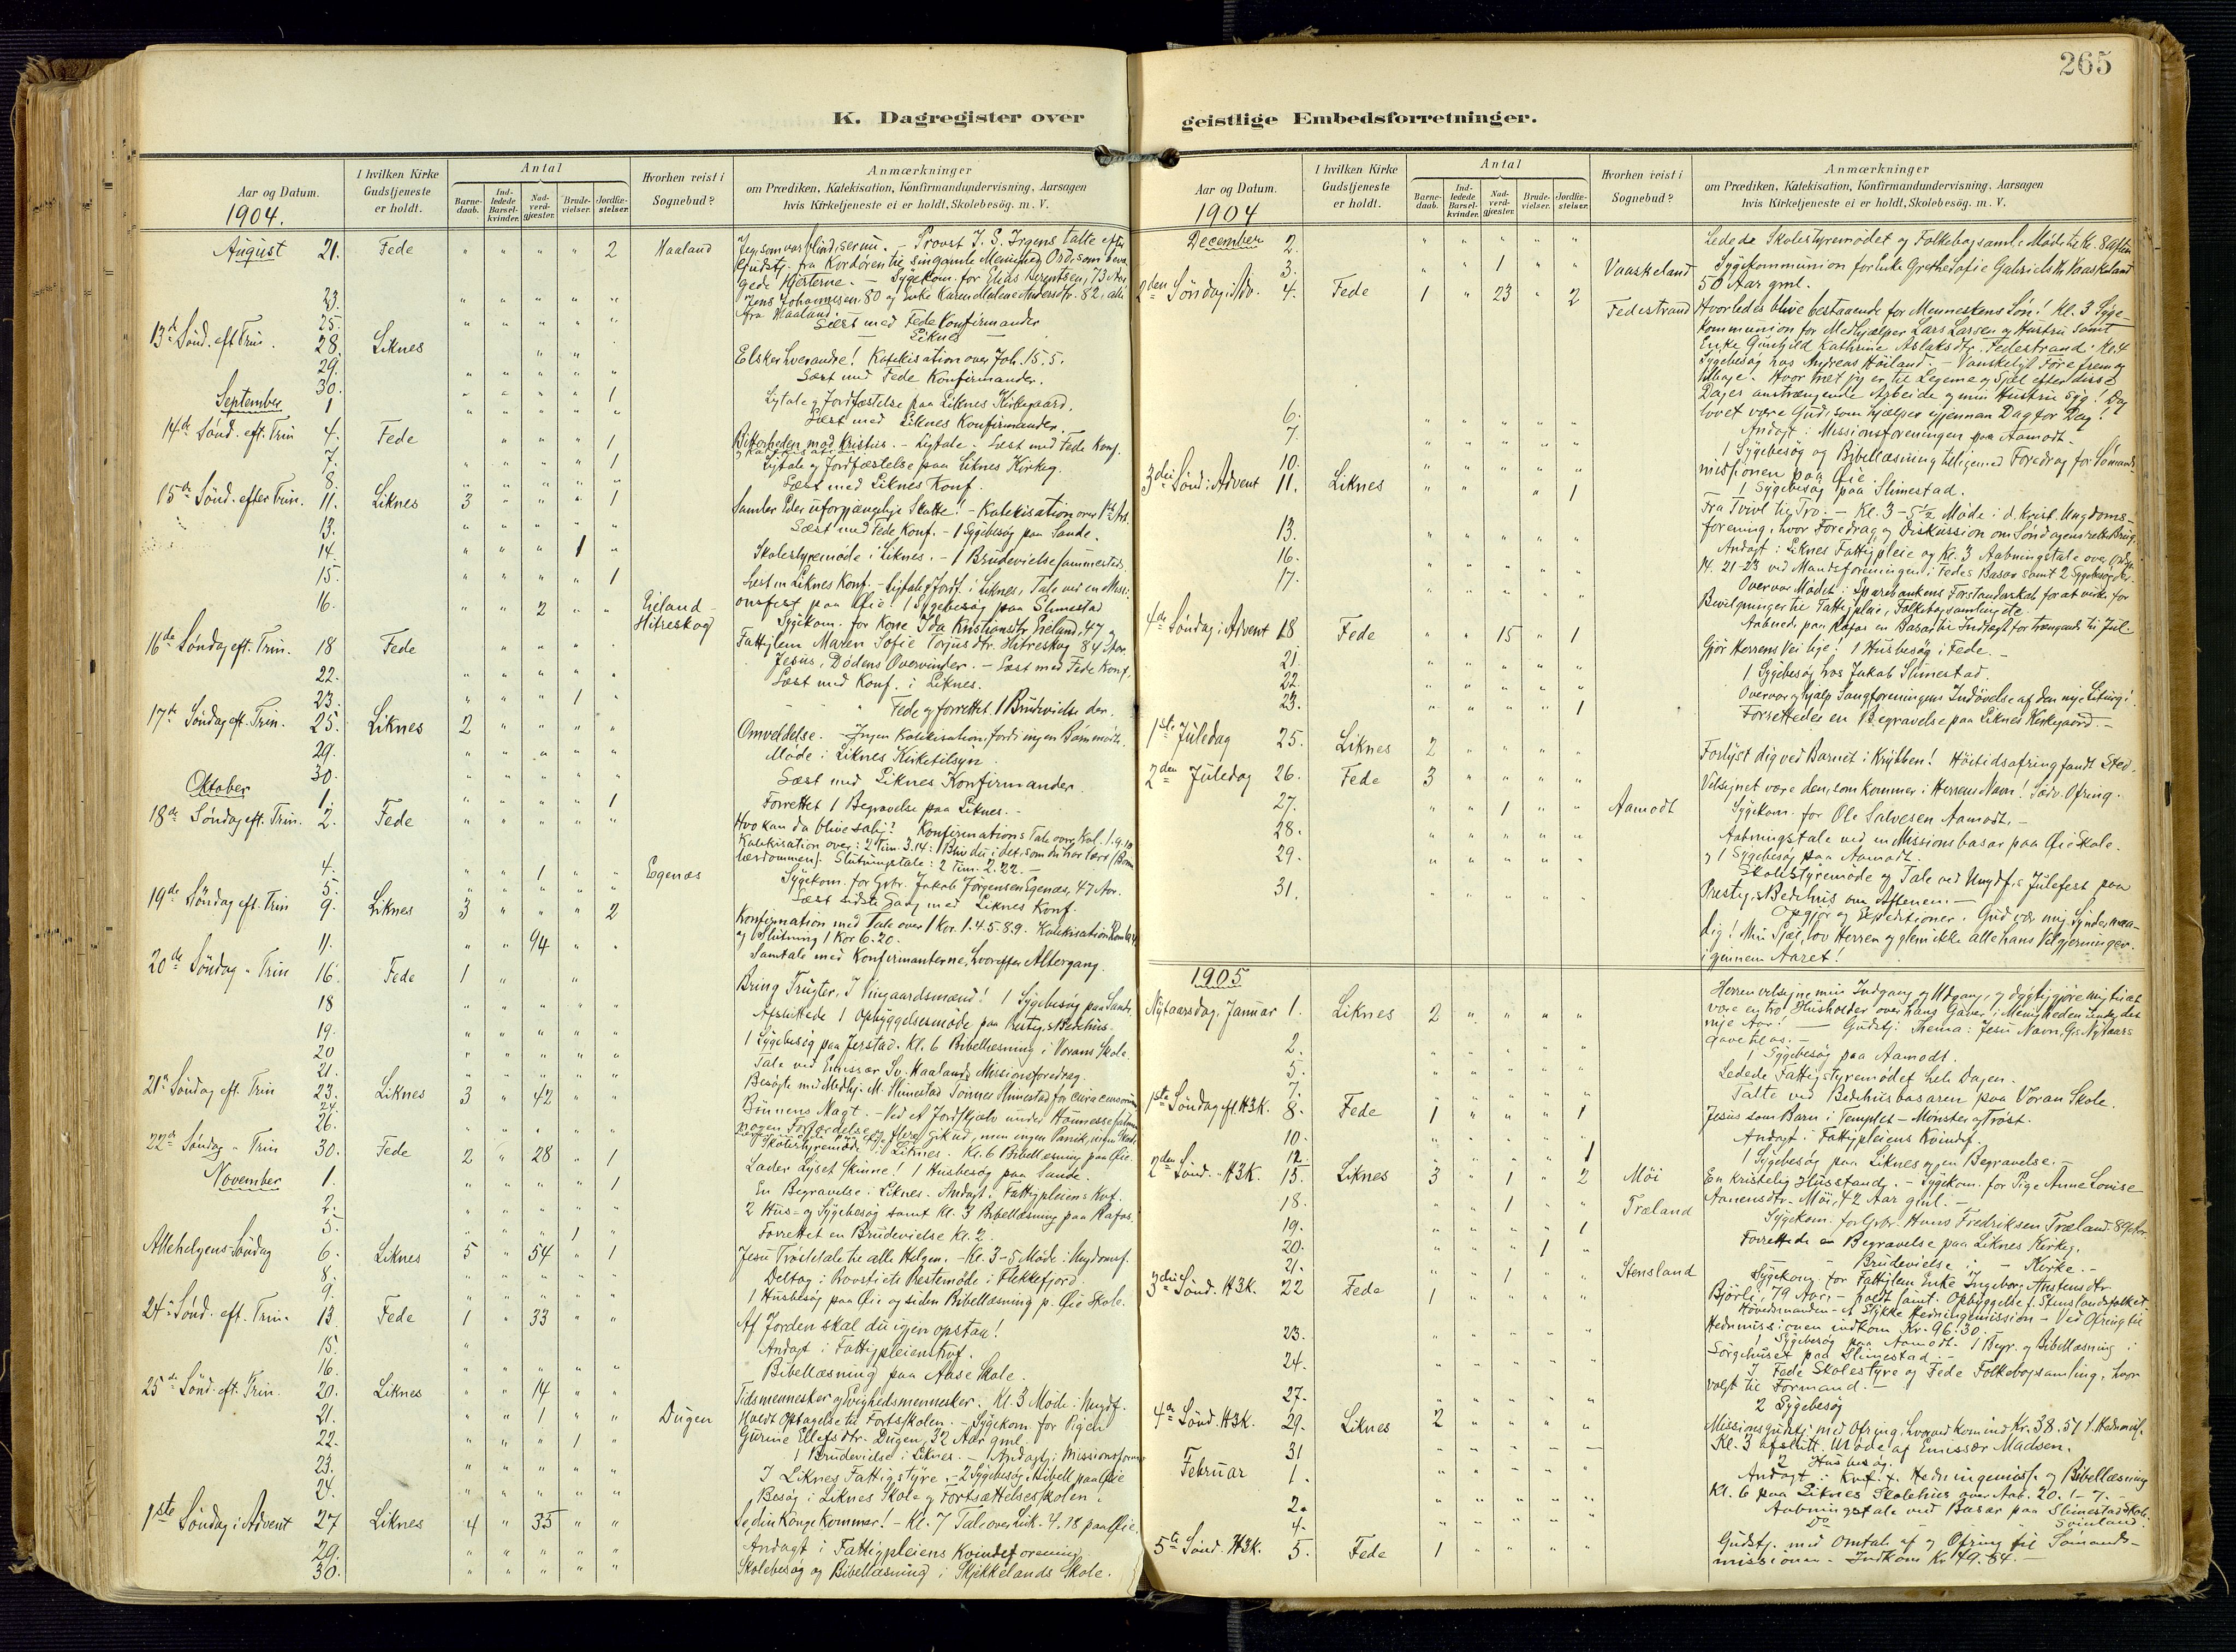 265
K. Dagregister over geistlige Embedsforretninger.
Aar og Datum.
I hvilken Kirke Gudstjeneste er holdt.
Antal
Barne-daab.
Ind-ledede Barsel-kvinder.
Nad-verd-gjæster.
Brude-vielser.
Jordfæ-stelser.
Hvorhen reist i Sognebud?
Anmærkninger
om Prædiken, Katekisation, Konfirmandundervisning, Aarsagen
hvis Kirketjeneste ei er holdt, Skolebesøg. m. V.
1904.
August 21. Fede " " " " 2 Haaland Jeg, som var blind, ser nu. - Provst J. S. Irgens talte efter
Gudstj. fra Kordøren til sin gamle Menighed
gede Hjerterne. - Sygekom. for Elias Berentsen, 73 Aar,
Jens Johannesen 80 og Enke Karen Malene Andersdtr. 82, alle
fra Haaland.
23. " " " " " Læst med Fede Konfirmander
25. " " " " " - Liknes -
13de Sønd. eft. Trin. 28. Liknes " " Elsker hverandre! Katekisation over Joh. 15. 5.
29. " " " " " Læst med Fede Konfirmander.
30. " " " " 1 Ligtale og Jordfæstelse paa Liknes Kirkegaard.
September 1 " " " " " Læst med Liknes Konfirmander.
14de Sønd. eft. Trin 4. Fede " " " 1 Bitterheden mod Kristus. - Ligtale - Læst med Fede Konf.
og Katekisation
7. " " " " 1 Ligtale og Jordfæstelse paa Liknes Kirkeg.
8. " " " " " Læst med Liknes Konf.
15de Sønd. efter Trin. 11. Liknes 3 " " " 1 Samler Eder uforgjængelige Skatte! - Katekisation over 1ste Art.
13. " " " " " Læst med Fede Konf. - 1 Sygebesøg paa Sande.
14. " " " 1 " Skolestyremøde i Liknes. - 1 Brudevielse sammesteds.
15. " " " " 1 Læst m Liknes Konf. - Ligtale og Jordf. i Liknes, Tale ved en Missi-
onsfest paa Øie. 1 Sygebesøg paa Slimestad
16. " " 2 " " Eieland - Hitreskog Sygekom. for Kone Ida Kristiansdtr. Eieland, 47 og
Fattiglem Maren Sofie Torjusdtr. Hitreskog 84 Aar.
16de Søndag eft. Trin. 18 Fede " " " " Jesus, Dødens Overvinder. - Læst med Fede Konf.
22. " " " " " Læst med Konf. i Liknes.
23. " " " 1 " - - " Fede og forrettet 1 Brudevielse der.
17de Søndag eft. Trin. 25. Liknes 2 " " " " Omvendelse. - Ingen Katekisation, fordi ingen Børn mødte.
29. " " " " " Møde i Liknes Kirketilsyn.
30. " " " " " Læst med Liknes Konfirmander.
Oktober 1. " " " " 1 Forrettet 1 Begravelse paa Liknes. -
18de Søndag eft. Trin. 2. Fede " " " " " Hvo kan da blive salig? Konfirmations Tale over Kol. 1. 9. 10
Katekisation over: 2 Tim. 3. 14: Bliv du i det, som du har lært (Barne
lærdommen). Slutningstale: 2 Tim. 2. 22. -
4. " " 1 " " Egenæs Sygekom. for Grbr. Jakob Jørgensen Egenæs, 47 Aar.
5. " " " " " Læst sidste Gang med Liknes Konf.
19de Søndag eft. Trin 9. Liknes 3 " " " 2 Konfirmation med Tale over 1 Kor. 1. 4. 5. 8. 9. Katekisation
og Slutning 1 Kor 6. 20.
11. " " 94 " " Samtale med Konfirmanterne, hvorefter Altergang.
20de Søndag " Trin 16. Fede 1 " " Bring Frugter, I Vingaardsmænd! 1 Sygebesøg paa Sande.
18 " " " " " Afsluttede 1 Opbyggelsesmøde paa Restig. Bedehus.
19. " " " " " 1 Sygebesøg paa Jerstad. Kl. 6 Bibellæsning i Vorans Skole.
20 " " " " " Tale ved Emissær Sv. Haalands Missionsforedrag.
21. " " " " " Besøgte med Medhj. M. Slimestad Tønnes Slimestad for cura censorium
21de Søndag eft. Trin 23. Liknes 3 " 42 " " Bønnens Magt. - Ved et Jordskjælv under
24.
26. " " " " nogen Forfærdelse og flere gik ud, men ingen Panik,
Skolestyremøde i Liknes. Kl. 6 Bibellæsning paa Øie.
22de Søndag " Trin 30. Fede 2 " 28 " 1 Lader Lyset skinne! 1 Husbesøg paa Sande.
November 1. " " " " 1 En Begravelse i Liknes. Andagt i Fattigpleiens Kvf.
2. " " " " " 2 Hus- og Sygebesøg samt Kl. 3 Bibellæsning paa Rafos.
5. " " " 1 " Forrettet en Brudevielse Kl. 2.
Allehelgens-Søndag 6. Liknes 5 " 54 " 1 Jesu Trøstetale til alle Helgen. - Kl. 3-5 Møde i Ungdomsf.
8. " " " " " Deltog i Provstiets Prestemøde i Flekkefjord.
9. " " " " " 1 Husbesøg paa Øie og siden Bibellæsning p. Øie Skole.
24de Sønd. eft. Trin. 13 Fede 1 " 33 " " Af Jorden skal du igjen opstaa!
15. " Andagt i Fattigpleiens Kvf.
16. " " " " " Bibellæsning paa Aase Skole.
25de Sønd. eft. Trin. 20. Liknes " " 14 " " Tidsmennesker og Evighedsmennesker. Kl. 3 Møde i Ungdf.
21. " " 1 " " Dugen Holdt Optagelse til Fortsskolen. - Sygekom for Pigen
Gurine Ellefsdtr. Dugen, 32 Aar gml.
22. " " " 1 " 1 Brudevielse i Liknes. - Andagt i Missionsforen
23. " " " " " I Liknes Fattigstyre. - 2 Sygebesøg. Bibell paa Øie
24. " " " " " Besøg i Liknes Skole og Fortsættelsesskolen.
1ste Søndag i Advent 27 Liknes 4 " 35 " " Se, din Konge kommer! - Kl. 7 Tale over Luk. 4. 18 paa Øie.
29. " " " " " Andagt i Fattigpleiens Kvindeforening
30. " " " " " Skolebesøg og Bibellæsning i Skjekkelands Skole.
Aar og Datum.
I hvilken Kirke Gudstjeneste er holdt.
Antal
Barne-daab.
Ind-ledede Barsel-kvinder.
Nad-verd-gjæster.
Brude-vielser.
Jordfæ-stelser.
Hvorhen reist i Sognebud?
Anmærkninger
om Prædiken, Katekisation, Konfirmandundervisning, Aarsagen
hvis Kirketjeneste ei er holdt, Skolebesøg. m. V.
1904
December 2. " " " " " Ledede Skolestyremødet og Folkebogsaml. Møde til Kl. 8 Aften
3. " " 1 " " Vaaskeland Sygekommunion for Enke Grethe Sofie Vaaskeland
50 Aar gml.
2den Søndag i Adv. 4. Fede 1 " 23 " 2 Fedestrand Hvorledes blive bestaaende for Menneskens Søn! Kl. 3 Syge-
kommunion for Medhjælper Lars Larsen og Hustru samt
Enke Gunhild Kathrine Aslaksdtr. Fedestrand. Kl. 4
Sygebesøg hos Andreas Høiland. - Vanskeligt Føre frem og
tilbage. Hvor træt jeg er til Legeme og Sjæl efter disse
Dages anstrængende Arbeide og min Hustru syg! Dog
lovet være Gud, som hjælper igjennem Dag for Dag!
6. " " " " " Andagt i Missionsforeningen paa Aamodt.
7. " " " " " 1 Sygebesøg og Bibellæsning tilligemed Foredrag for Sømands-
missionen paa Øie.
10. " " " " " 1 Sygebesøg paa Slimestad.
3die Sønd. i Advent 11. Liknes " " " 1 Fra Tvivl til Tro. - Kl. 3-5½ Møde i d. krist. Ungdoms-
forening, hvor Foredrag og Diskussion om Søndagens rette Brug.
13. " " " " " Andagt i Liknes Fattigpleie og Kl. 3 Aabningstale over
14. 21-23 ved Mandsforeningen i Fedes Basar samt 2 Sygebesøg der.
16. " " " " " Overvar Mødet i Sparebankens Forstanderskab for at virke for
Bevilgninger til Fattigpleie, Folkebogsamling etc.
17. " " " " " Aabnede paa Rafos en Basar til Indtægt for trængende til Jul
4de Søndag i Advent 18 Fede " " 15 " 1 Gjør Herrens Vei lige! 1 Husbesøg i Fede. -
21. " " " " " 1 Sygebesøg hos Jakob Slimestad.
22. " " " " " Overvar og hjalp Sangforeningens Indøvelse af den nye Liturgi.
23. " " " " 1 Forrettedes en Begravelse paa Liknes Kirkegaard. -
1ste Juledag 25. Liknes 2 " " " " Forlyst dig ved Barnet i Krybben! Høitidsofring fandt Sted.
2den Juledag 26. Fede 3 " " " " Velsignet være den, som kommer i Herrens Navn! Sædv. Ofring.
27. " " 1 " " Aamodt Sygekom. for Ole Salvesen Aamodt. -
28. " " " " " Aabningstale ved en Missionsbasar paa Øie Skole.
29. " " " " " og 1 Sygebesøg paa Aamodt.
Skolestyremøde og Tale ved Ungdf.s Julefest paa
31. " " " " Prestig. Bedehus om Aftenen. -
Opgjør og Expeditioner. Gud vær mig Synder naa-
dig! Min Sjæl, lov Herren og glem ikke alle hans Velgjerninger
igjennem Aaret!
1905
Nytaarsdag, Januar 1. Liknes 2 " " " " Herren velsigne min Indgang og Udgang, og dygtiggjøre mig til at
være en tro Husholder over hans Gaver i Menigheden
nye Aar! - Gudstj. Thema: Jesu Navn, Gs Nytaars
gave til os. -
2. " " " " " 1 Sygebesøg paa Aamodt.
5. " " " " " Ledede Fattigstyremødet hele Dagen.
7. " " " " " Talte ved Bedehusbasaren paa Voran Skole.
1ste Søndag eft H3K. 8. Fede 1 " " " 1 Jesus som Barn i Templet - Mønster og Trøst.
10. " " " " " Andagt i Fattigpleiens Kvindef.
12. " " " " 1 1 Sygebesøg paa Liknes og en Begravelse. -
2den Sønd. - H3K. 15. Liknes 3 " 1 " 2 Møi En kristelig Husstand. - Sygekom. for Pige Anne Lovise
Aanensdtr. Møi, 42 Aar gml. -
18. " " 1 " " Træland Sygekom. for Grbr. Hans Fredriksen Træland. 89 Aar
19. " " " " 1 Forrettede en Begravelse paa Liknes Kirkeg.
20. " " " 1 " - - Brudevielse i - Kirke. -
21. " " 1 " " Stensland Sygekom. for Fattiglem Enke Ingeborg Anstensdtr.
3die Sønd. H3K. 22 Fede 1 " " " " Bjørli, 79 Aar, - holdt samt. Opbyggelse f. Stenslandsfolket
Høvedsmanden - et Stykke Hedningemission - Ved Ofring til
Hedn missionen indkom Kr. 96:30.
23. " " " " " 1 Sygebesøg paa Aamodt. 1 Begr. og Bibellæsning i
Sørgehuset paa Slimestad. -
24. " " " " " I Fede Skolestyre og Fede Folkebogsamling, hvor
valgt til Formand. -
27. " " " " " 2 Sygebesøg
4de Sønd. H3K. 29. Liknes 2 " " " " Missionsgudstj. med Ofring, hvorved kom ind Kr. 38.51 f. Hedn mis.
Kl. 3 afslutt. Møde af Emissær Madsen.
31 " " " " - 2 Husbesøg.
Februar 1. " " " " " Andagt i Kvf. f. Hedningemiss. og Bibellæsning
Kl. 6 paa Liknes Skolehus over Aab. 20. 1-7. -
2. " " " " " Aabningstale ved Basar paa Slimestad Skole.
4. " " " " " Do - Svinland.
5te Sønd. H3K. 5. Fede 1 " " " " Gudstj. med Omtale af og Ofring til Sømands-
missionen - Indkom Kr 49.84. -